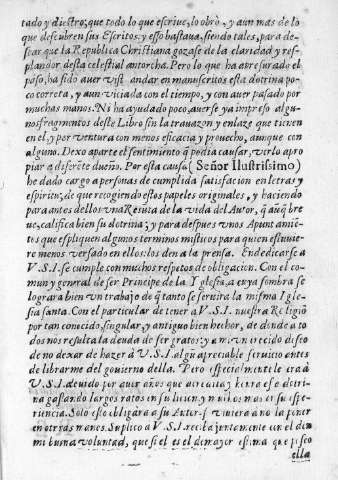 tado y diestro; que todo lo que escriue, lo obrò, y aun mas de lo
que descubren sus Escritos, y esso bastaua, siendo tales, para de-
sear que la Republica Christiana gozase de la claridad y res-
plandor desta celestial antorcha. Pero lo que ha apresurado el
paso, ha sido auer visto andar en manuscritos esta dotrina po-
co correta, y aun viciada con el tiempo, y con auer pasado por
muchas manos. Ni ha ayudado poco, auerse ya impreso algu-
nos fragmentos deste Libro sin la trauazon y enlaze que tienen
en el, y por ventura con menos eficacia y prouecho, aunque con
alguno. Dexo aparte el sentimiento q̃ podia causar, verlo apro
piar a diferẽte dueño. Por esta causa (Señor Ilustrissimo)
he dado cargo a personas de cumplida satisfacion en letras y
espiritu; de que recogiendo estos papeles originales, y haciendo
para antes dellos vna Reuista de la vida del Autor, q̃ aũq̃ bre
ue, califica bien su dotrina; y para despues vnos Apuntamiẽ-
tos que espliquen algunos terminos misticos para quien estuuie-
re menos versado en ellos: los den a la prensa. En dedicarse a
V.S.I. se cumple con muchos respetos de obligacion. Con el co-
mun y general de ser Principe de la Yglesia, a cuya sombra se
lograra bien vn trabajo de q̃ tanto se seruira la misma Igle-
sia santa. Con el particular de tener a V.S.I. nuestra Religiõ
por tan conocido, singular, y antiguo bien hechor, de donde a to
dos nos resulta la deuda de ser gratos: y a mi vn crecido deseo
de no dexar de hazer à V.S.I. algũ apreciable seruicio antes
de librarme del gouierno della. Pero especialmente le era à
V.S.I. deuido por auer años que acredita y honra esta dotri-
na gastando largos ratos en su licion, y muchos mas en su espe-
riencia. Solo esto obligàra a su Autor si viuiera a no la poner
en otras manos. Suplico a V.S.I. reciba juntamente con el don
mi buena voluntad, que si el es de mayor estima que
ella